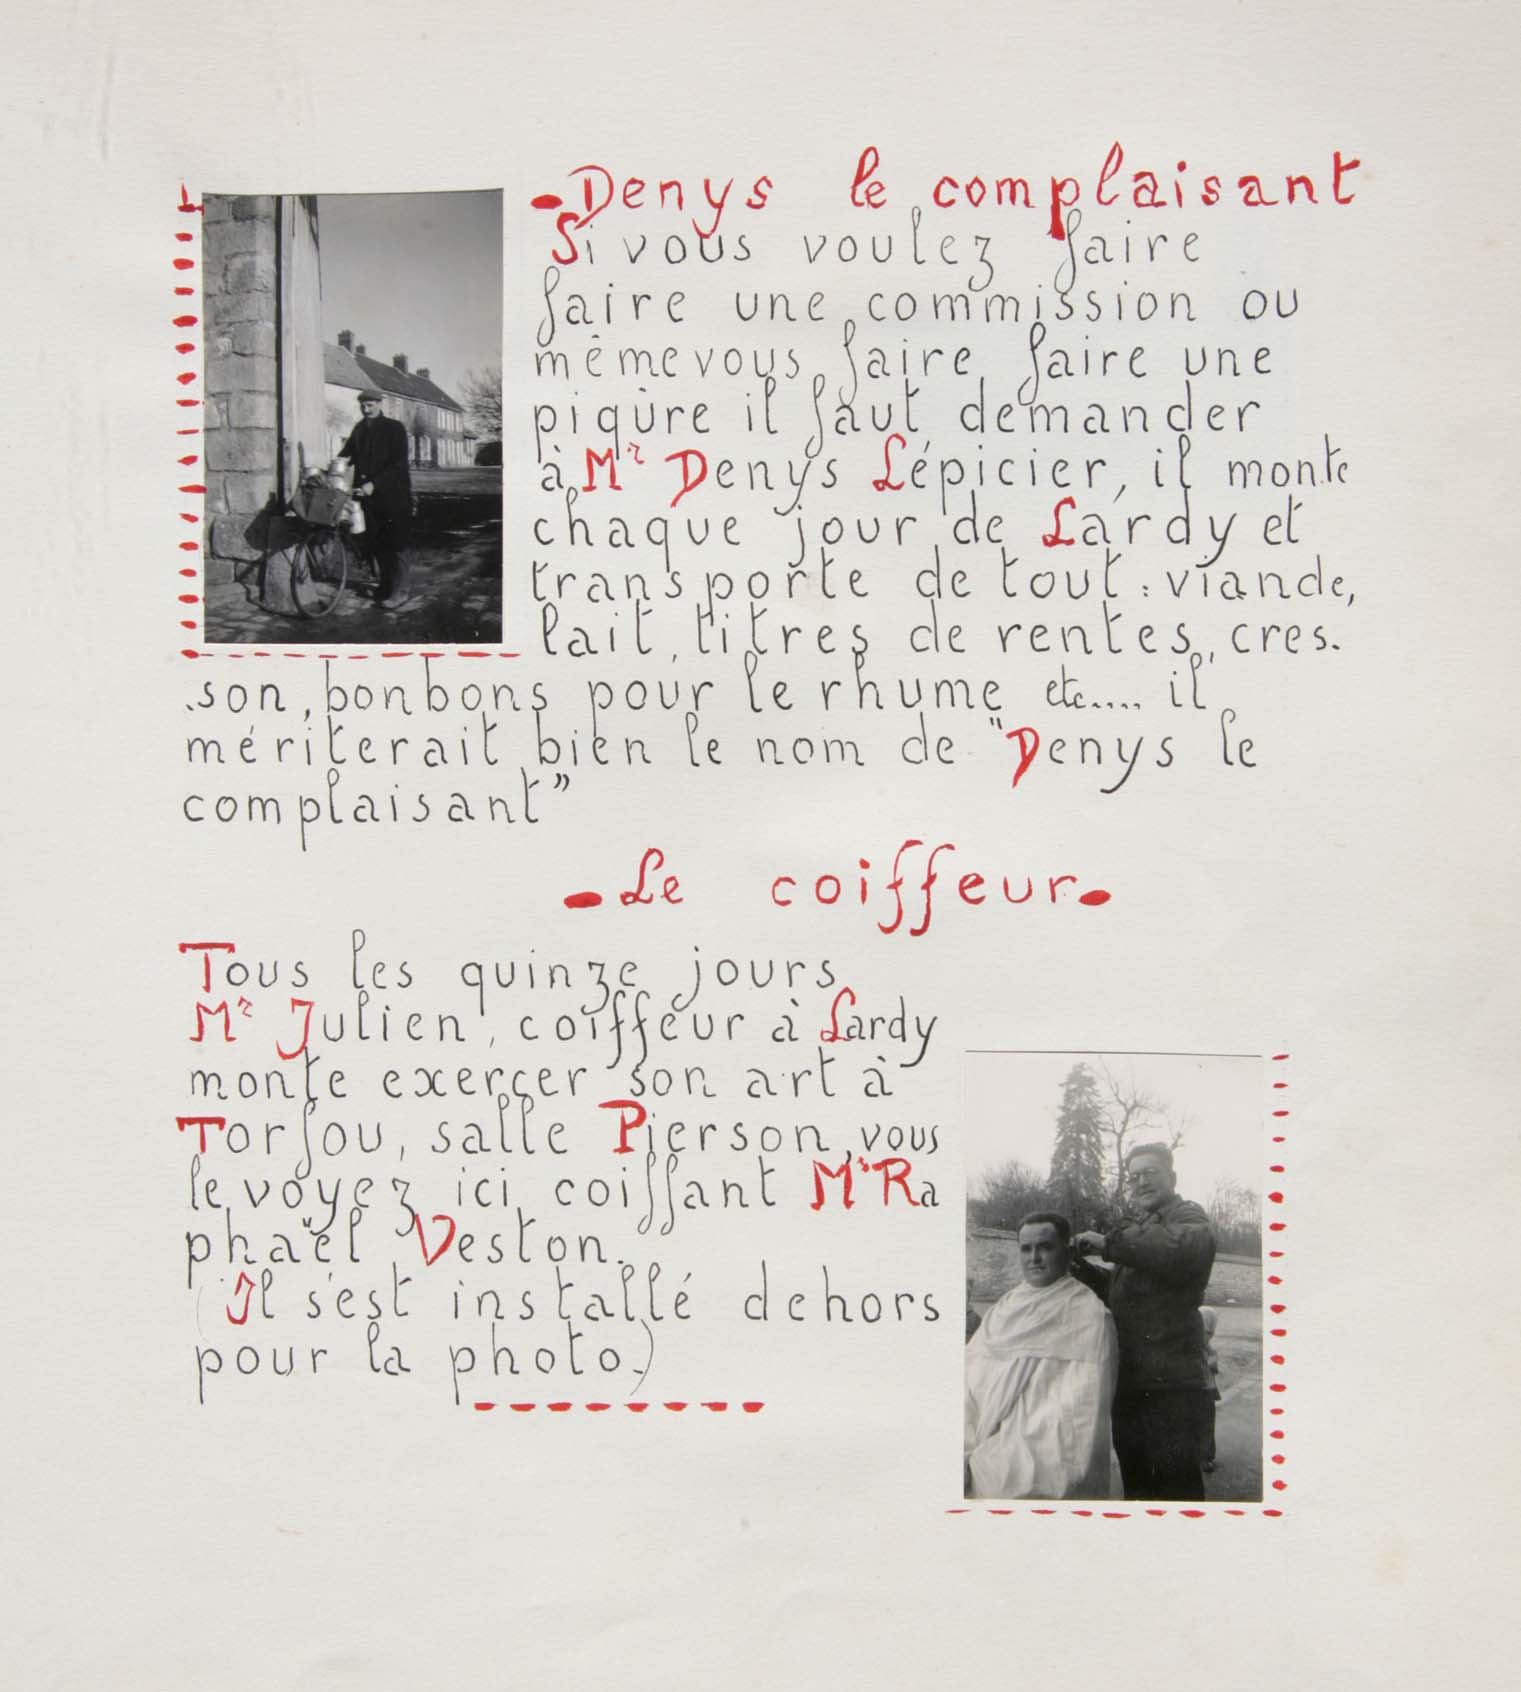 - Denys le complaisant
Si vous voulez faire
faire une commission ou
même vous faire faire une
piqûre il faut demander
à Mr Denys Lépicier, il monte
chaque jour de Lardy et
transporte de tout : viande,
lait, titres de rentes, cres.
.son, bonbons pour le rhume etc.... il
mériterait bien le nom de "Denys le
complaisant"
- Le coiffeur -
Tous les quinze jours
Mr Julien, coiffeur à Lardy
monte exercer son art à
Torfou, salle Pierson, vous
le voyez ici coiffant Mr Ra
phaël Veston.
(Il s'est installé dehors
pour la photo.)